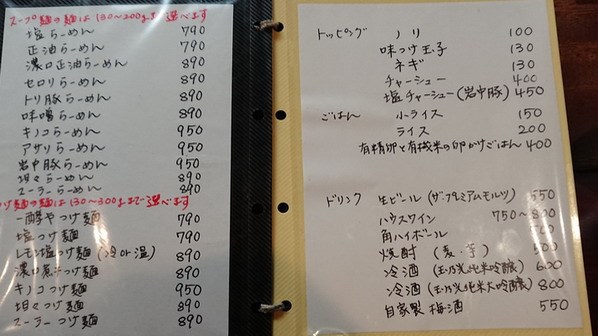 スープ麺の麺は130〜200gまで選べます
塩らーめん 790
正油らーめん 790
濃口正油らーめん 890
セロリらーめん 890
トリ豚らーめん 890
味噌らーめん 890
キノコらーめん 950
アサリらーめん 950
岩中豚らーめん 950
坦々らーめん 890
スーラーらーめん 890
つけ麺の麺は130〜300gまで選べます
一醇やつけ麺 790
塩つけ麺 790
レモン塩つけ麺(冷or温)
濃口煮干つけ麺 890
キノコつけ麺 950
坦々つけ麺 890
スーラーつけ麺 890
トッピング ノリ 100
味つけ玉子 130
ネギ 130
チャーシュー 400
塩チャーシュー(岩中豚) 450
ごはん 小ライス 150
ライス 200
有精卵と有機米の卵かけごはん 400
ドリンク 生ビール(ザ・プレミアムモルツ) 550
ハウスワイン 750〜800
角ハイボール 500
焼酎(麦・芋) 500
冷酒(玉乃光純米吟醸) 600
冷酒(玉乃光純米大吟醸) 800
自家製梅酒 550